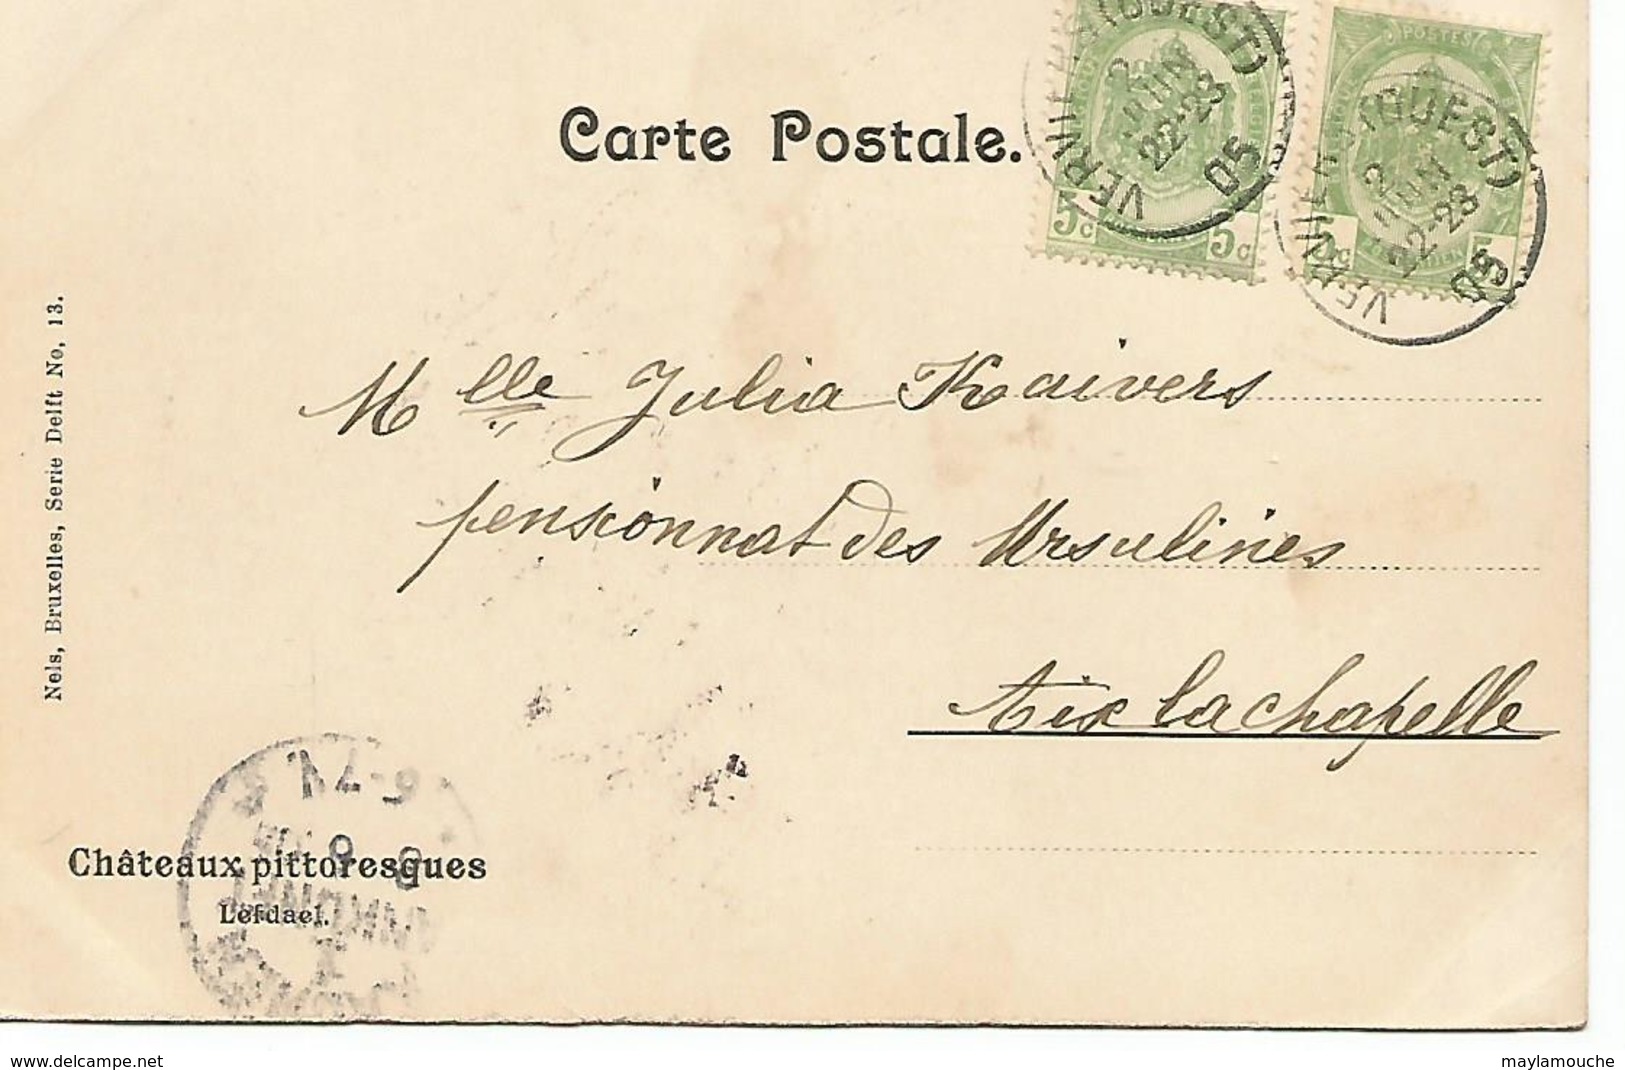 Carte Postale.
VERVIERS (OUEST)
2
JUIN
22-23
05
5c 5c
POSTES
VERVIERS (OUEST)
2
JUIN
22-23
05
5c 5
Nels, Bruxelles, Serie Delft No. 13.
Mlle Julia Kaivers
pensionnat des Ursulines
Aix la chapelle
Châteaux pittoresques
Lefdael.
www.delcampe.net
maylamouche